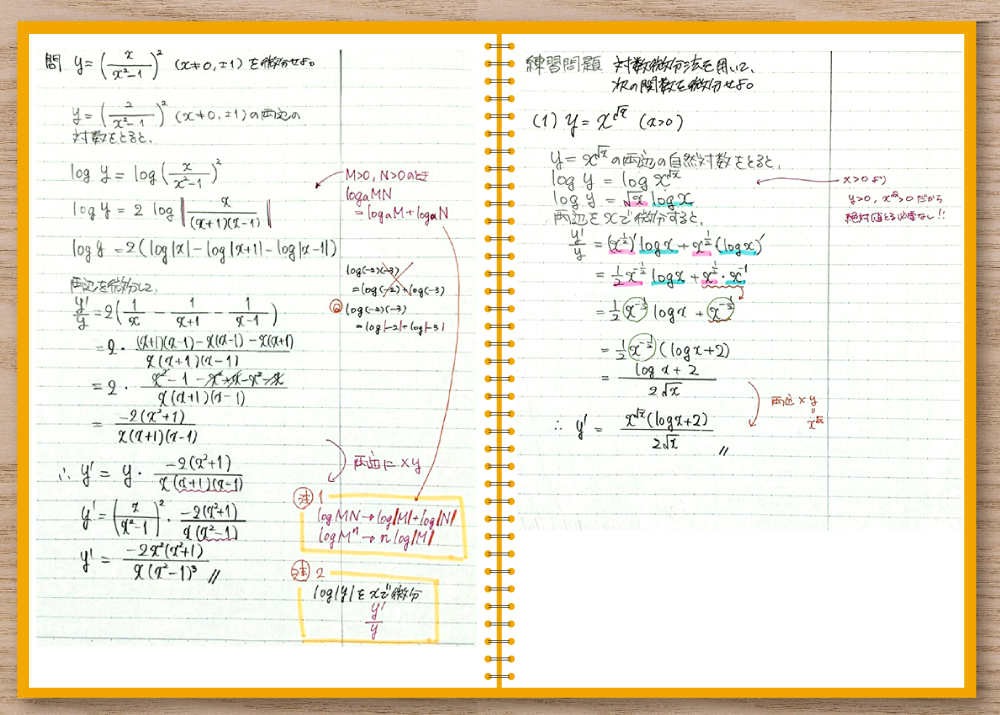 問 y=(x/(x²-1))² (x≠0,±1) を微分せよ。
y=(x/(x²-1))² (x≠0,±1)の両辺の
対数をとると、
log y = log(x/(x²-1))²
log y = 2 log|x/((x+1)(x-1))|
log y = 2(log|x|-log|x+1|-log|x-1|)
両辺を微分して、
y'/y = 2(1/x - 1/(x+1) - 1/(x-1))
= 2・((x+1)(x-1)-x(x-1)-x(x+1))/(x(x+1)(x-1))
= 2・(x²-1-x²+x-x²-x)/(x(x+1)(x-1))
= -2(x²+1)/(x(x+1)(x-1))
∴ y' = y・-2(x²+1)/(x(x+1)(x-1))
y' = (x/(x²-1))²・-2(x²+1)/(x(x²-1))
y' = -2x²(x²+1)/(x(x²-1)³) //
M>0, N>0のとき
logₐMN
= logₐM + logₐN
log(-2)(-3)
= log(-2)+log(-3)
◎ log(-2)(-3)
= log|-2|+log|-3|
両辺に×y
注1
log MN → log|M|+log|N|
log Mⁿ → n log|M|
注2
log|y|をxで微分
y'/y
練習問題 対数微分法を用いて、
次の関数を微分せよ。
(1) y = x^√x (x>0)
y=x^√xの両辺の自然対数をとると、
log y = log x^√x
log y = √x log x
両辺をxで微分すると、
y'/y = (x^(1/2))' log x + x^(1/2) (log x)'
= 1/2 x^(-1/2) log x + x^(1/2)・x^(-1)
= 1/2 x^(-1/2) log x + x^(-1/2)
= 1/2 x^(-1/2) (log x+2)
= (log x + 2)/(2√x)
∴ y' = x^√x (log x+2)/(2√x) //
x>0より
y>0, x^√x>0だから
絶対値とる必要なし!!
両辺×y
x^√x